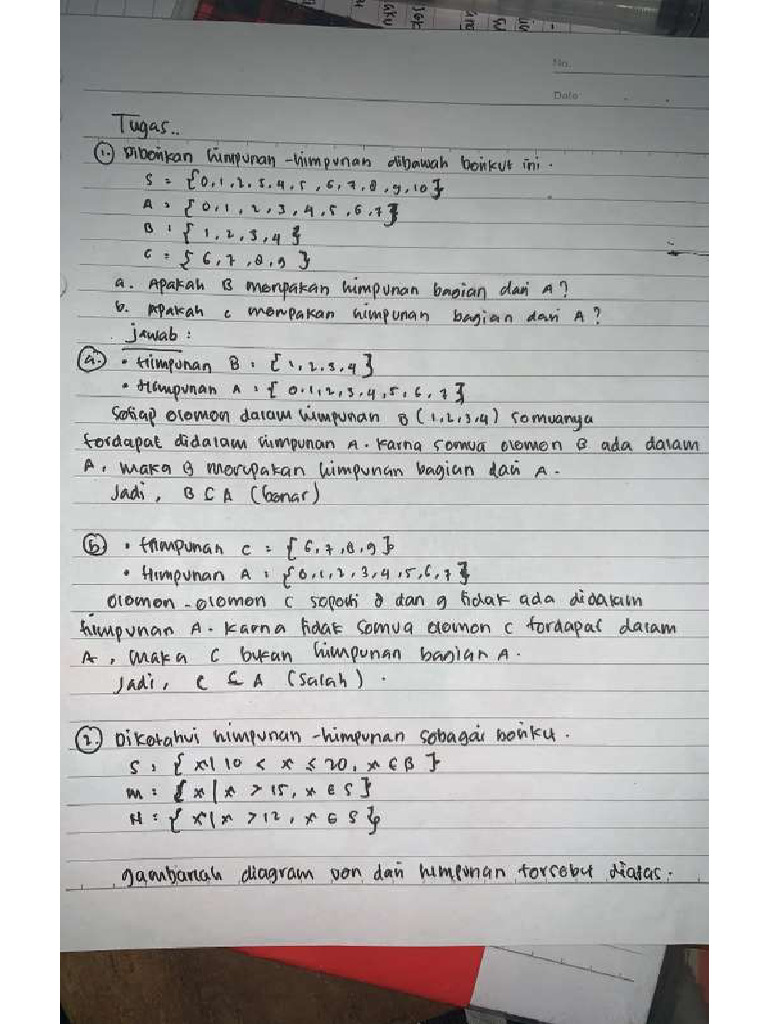 No.
Date
Tugas..
1. Diberikan himpunan-himpunan dibawah berikut ini.
S = {0,1,2,3,4,5,6,7,8,9,10}
A = {0,1,2,3,4,5,6,7}
B = {1,2,3,4}
C = {6,7,8,9}
a. Apakah B merupakan himpunan bagian dari A?
b. Apakah C merupakan himpunan bagian dari A?
Jawab :
a. • Himpunan B = {1,2,3,4}
• Himpunan A = {0,1,2,3,4,5,6,7}
Setiap elemen dalam himpunan B (1,2,3,4) semuanya
terdapat didalam himpunan A. Karna semua elemen B ada dalam
A, maka B merupakan himpunan bagian dari A.
Jadi, B ⊂ A (benar)
b. • Himpunan C = {6,7,8,9}
• Himpunan A = {0,1,2,3,4,5,6,7}
elemen-elemen C seperti 8 dan 9 tidak ada didalam
himpunan A. Karna tidak semua elemen C terdapat dalam
A, maka C bukan himpunan bagian A.
Jadi, C ⊂ A (Salah).
2. Diketahui himpunan-himpunan sebagai berikut.
S = {x | 10 < x ≤ 20, x ∈ B}
M = {x | x > 15, x ∈ S}
N = {x | x > 12, x ∈ S}
gambarlah diagram ven dari himpunan tersebut diatas.